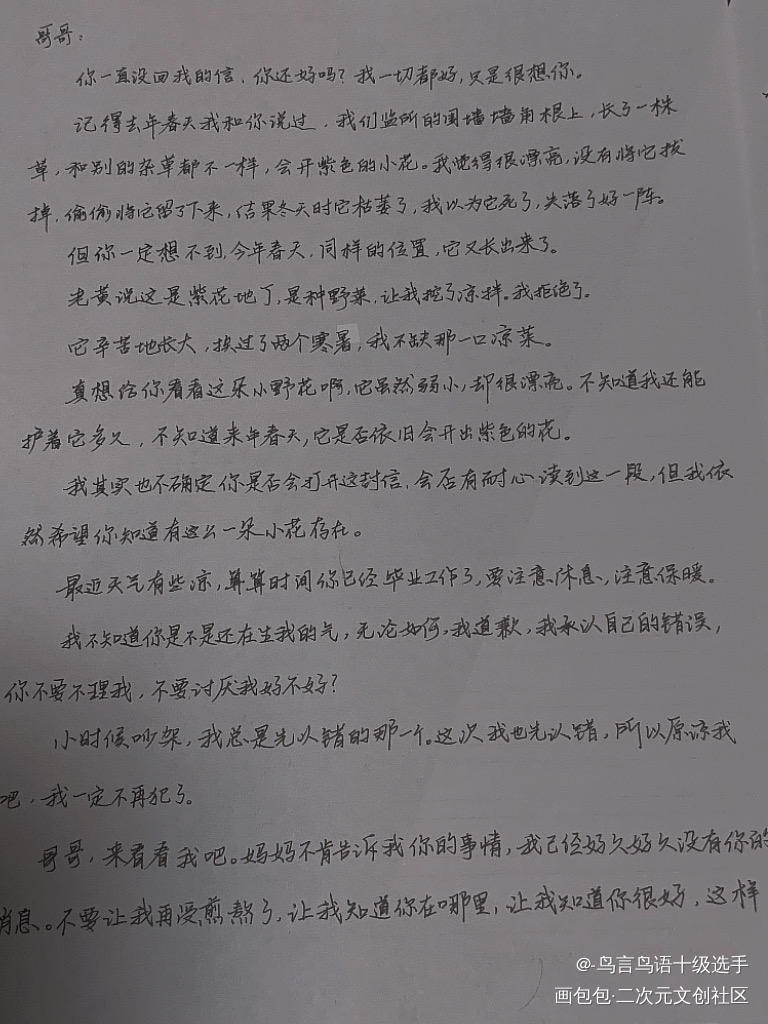 哥哥：
你一直没回我的信，你还好吗？我一切都好，只是很想你。
记得去年春天我和你说过，我们监所的围墙墙角根上，长了一株
草，和别的杂草都不一样，会开紫色的小花。我觉得很漂亮，没有将它拔
掉，偷偷将它留了下来，结果冬天时它枯萎了，我以为它死了，失落了好一阵。
但你一定想不到，今年春天，同样的位置，它又长出来了。
老黄说这是紫花地丁，是种野菜，让我挖了凉拌。我拒绝了。
它辛苦地长大，挨过了两个寒暑，我不缺那一口凉菜。
真想给你看看这朵小野花啊，它虽然弱小，却很漂亮。不知道我还能
护着它多久，不知道来年春天，它是否依旧会开出紫色的花。
我其实也不确定你是否会打开这封信，会否有耐心读到这一段，但我依
然希望你知道有这么一朵小花存在。
最近天气有些凉，算算时间你已经毕业工作了，要注意休息，注意保暖。
我不知道你是不是还在生我的气，无论如何，我道歉，我承认自己的错误，
你不要不理我，不要讨厌我好不好？
小时候吵架，我总是先认错的那一个。这次我也先认错，所以原谅我
吧，我一定不再犯了。
哥哥，来看看我吧。妈妈不肯告诉我你的事情，我已经好久好久没有你的
消息。不要让我再受煎熬了，让我知道你在哪里，让我知道你很好，这样
@-鸟言鸟语十级选手
画包包·二次元文创社区